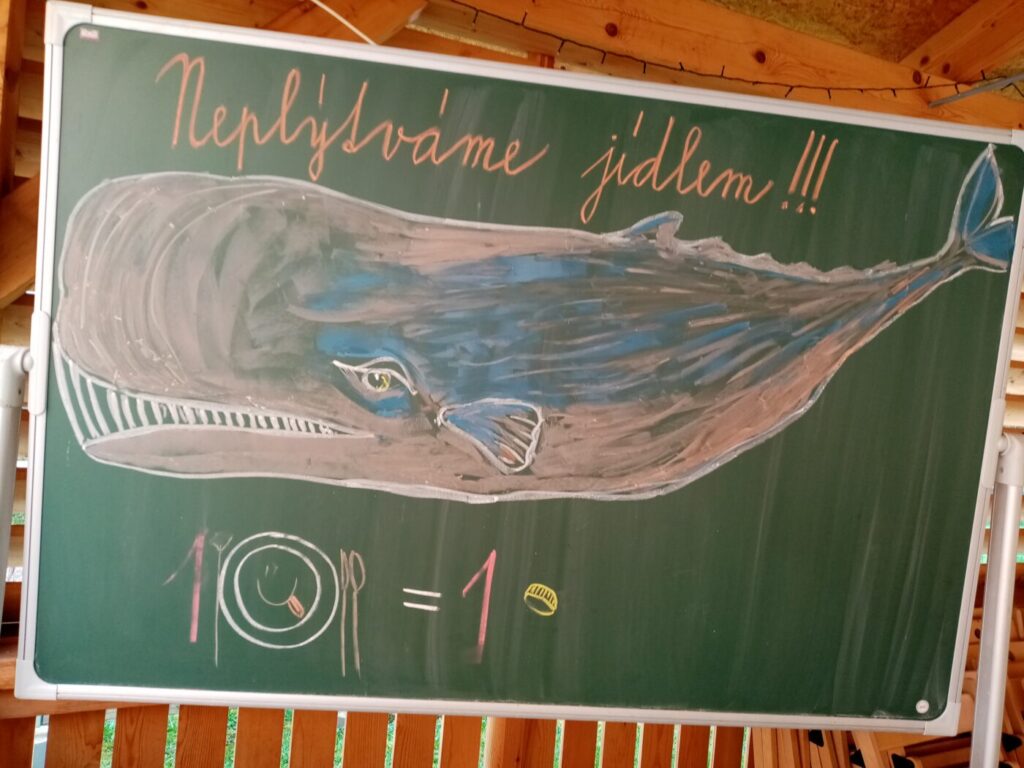 Neplýtváme jídlem!!!
1 = 1